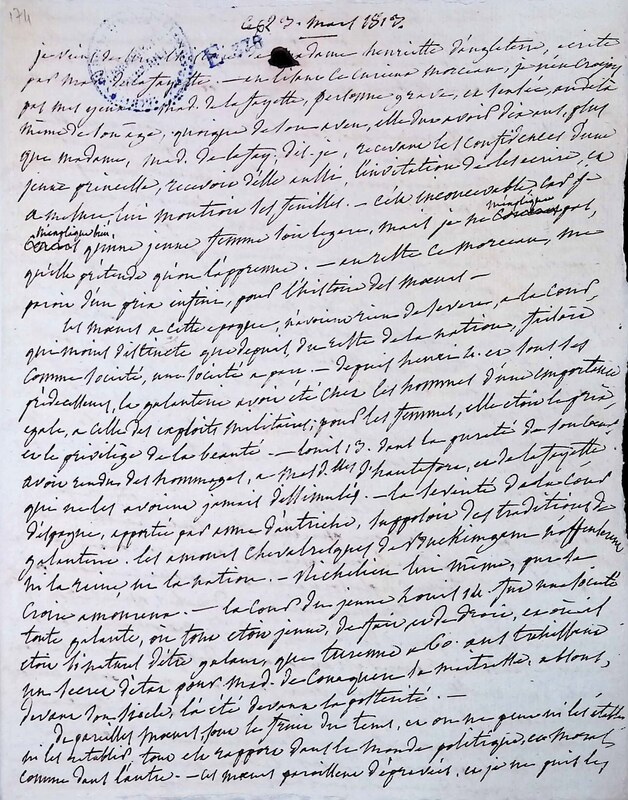 1711
ce 23. mars 1813.
E 326
je viens de lire de madame henriette d'angleterre, ecrite
par mad. de la fayette. – en lisant ce curieux morceau, je n'en croyois
pas mes yeux. mad. de la fayette, personne grave, et sensée, au delà
même de son age, quoique de son aveu, elle dut avoir dix ans plus
que madame, mad. de la fay. dis-je, recevant les confidences d'une
jeune princesse, recevoit d'elle aussi l'invitation de les ecrire, et
a mesure lui montroit les feuilles. – cela inconcevable car je
m'explique bien, qu'une jeune femme soit legere, mais je ne m'explique pas,
qu'elle prétende qu'on l'apprenne. – au reste ce morceau, me
paroit d'un prix infini, pour l'histoire des mœurs –
les mœurs a cette epoque, n'avoient rien de severe, et la cour,
que moins distincte que depuis, du reste de la nation, faisoit
comme société, une société a part. – depuis henri 4. et tous ses
prédécesseurs, la galanterie avoit été chez les hommes d'une importance
egale, a celle des exploits militaires; pour les femmes, elle etoit le prix
et le privilège de la beauté. – louis 13. dans la pureté de son cœur
avoit rendu des hommages, a mesd.lles d'hautefort, et de la fayette
qui ne les avoient jamais dissimulés. – la sévérité de la cour
d'espagne, apportée par anne d'autriche, supposoit des traditions de
galanterie. les amours chevaleresques de Buckingham n'offensoient
ni la reine, ni la nation. – Richelieu lui même, que la
croit amoureux. – la cour du jeune Louis 14. fut une société
toute galante, où tout etoit jeune, de fait, et de droit, et où il
etoit si naturel d'être galant, que turenne a 60. ans trahissant
un secret d'état pour mad. de Coaquen sa maitresse, absous,
devant son siècle, l'a été devant la postérité. –
de pareilles mœurs, sont le fruit du tems, et on ne peut ni les établir
ni les rétablir tout se rapporte dans le monde politique, et moral
comme dans l'autre. – ces mœurs paroissent dépravées, et je ne puis les